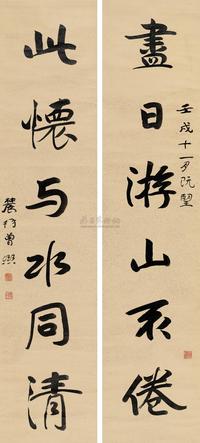 盡日游山不倦
壬戌十一月阮堅
此懷与水同清
農髯曾熙